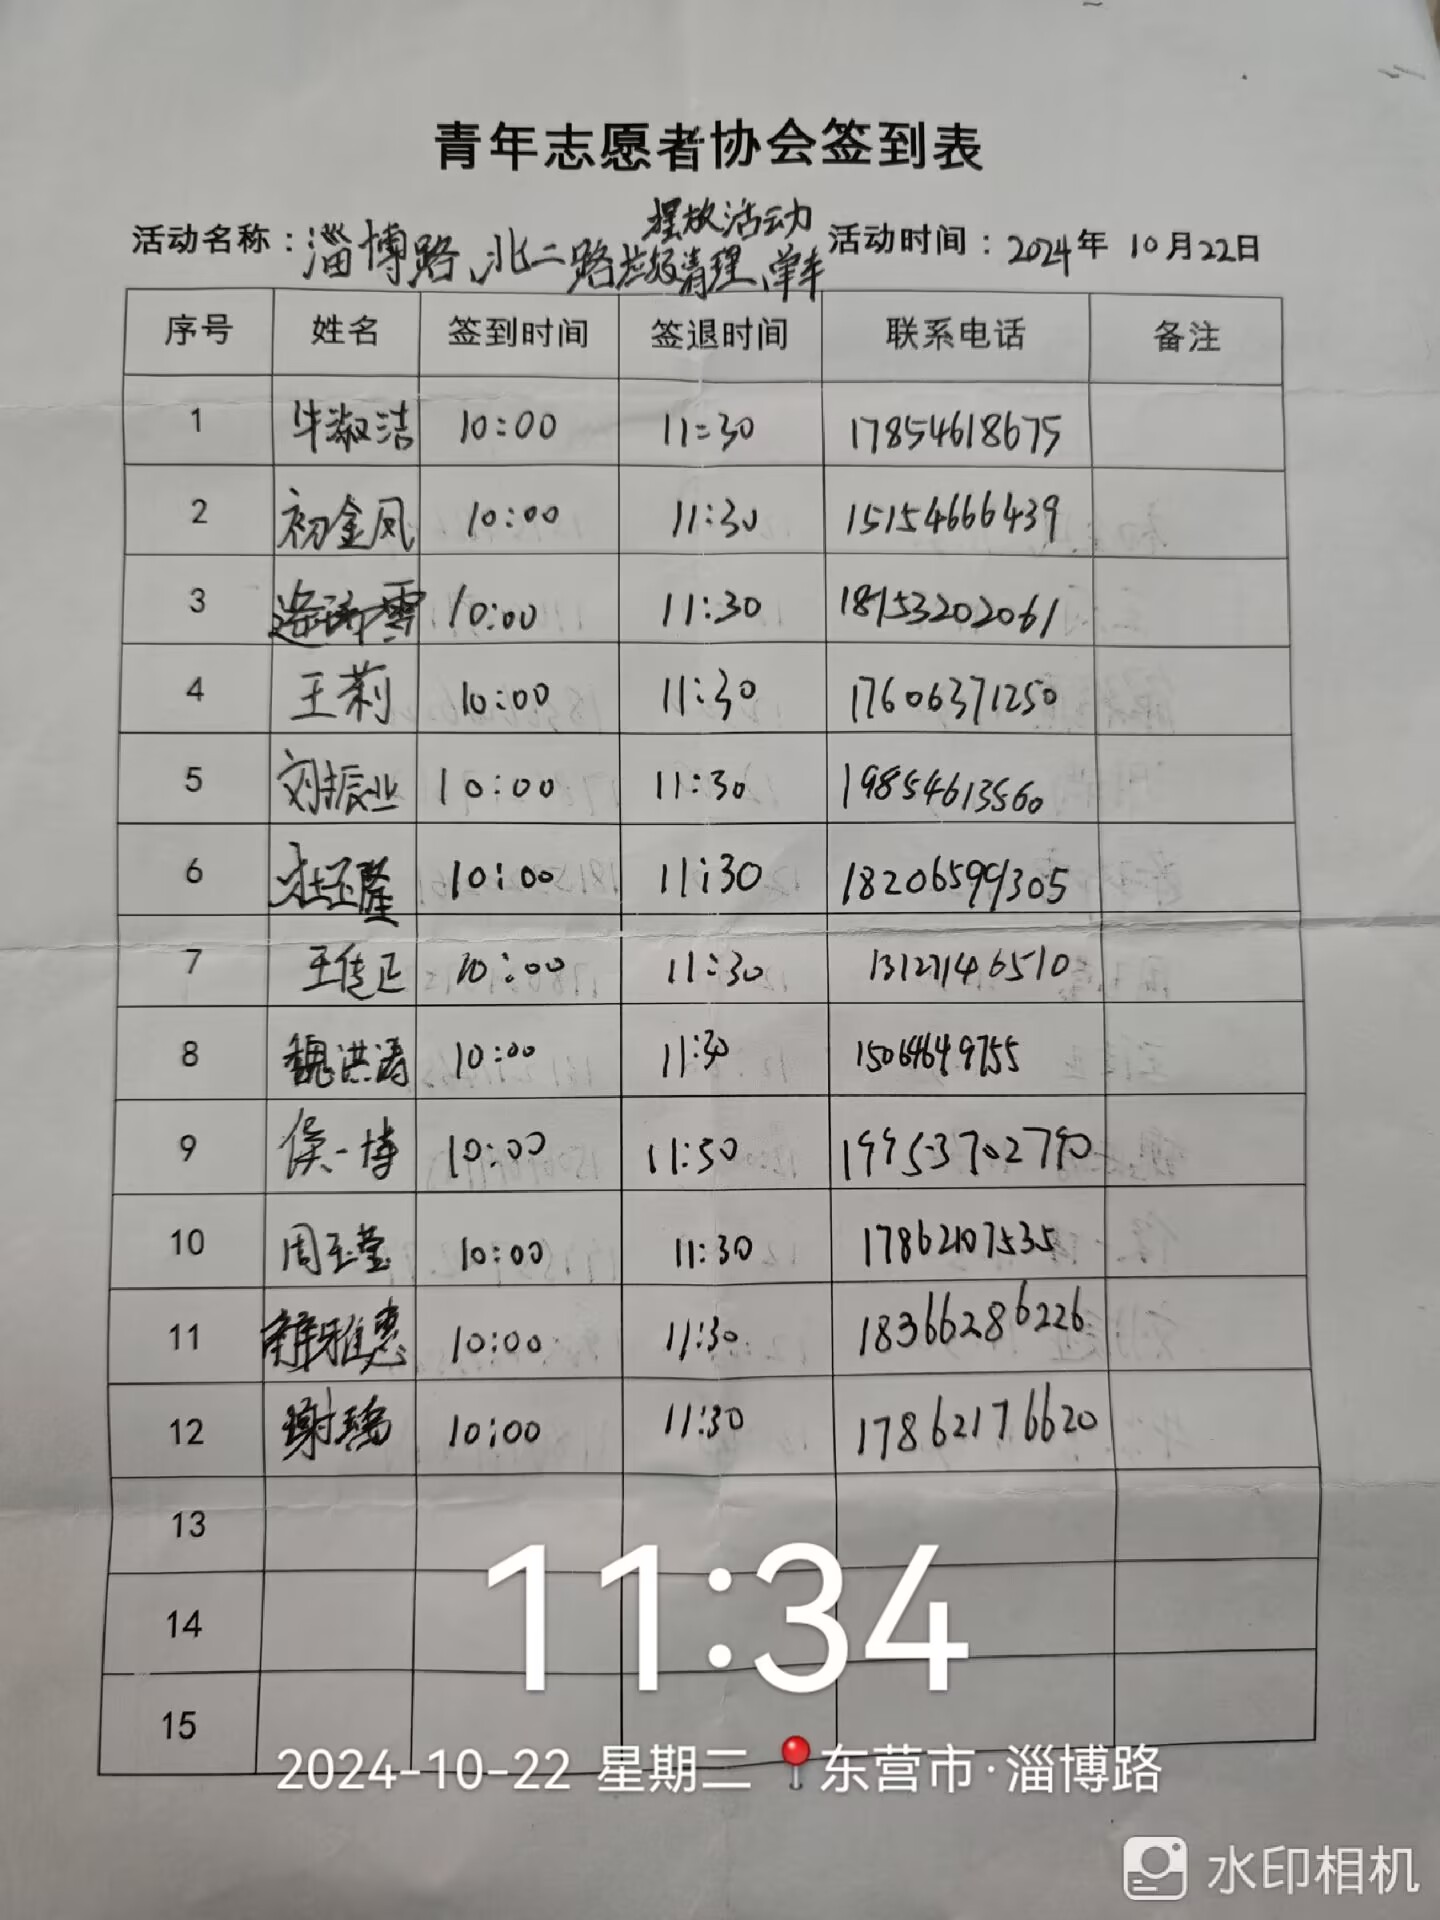 青年志愿者协会签到表
摆放活动
活动名称：淄博路、北二路垃圾清理、单车 活动时间：2024年 10月22日
序号 姓名 签到时间 签退时间 联系电话 备注
1 牛淑洁 10:00 11:30 17854618675
2 初金凤 10:00 11:30 15154666439
3 10:00 11:30 18153202061
4 王莉 10:00 11:30 17606371250
5 刘振业 10:00 11:30 19854613560
6 杜玉隆 10:00 11:30 18206599305
7 王传正 10:00 11:30 13127146510
8 魏洪涛 10:00 11:30 15064649755
9 侯一博 10:00 11:30 19953702790
10 周玉莹 10:00 11:30 17862107535
11 雅惠 10:00 11:30 18366286226
12 谢瑀 10:00 11:30 17862176620
13
14
15
11:34
2024-10-22 星期二 东营市·淄博路
水印相机